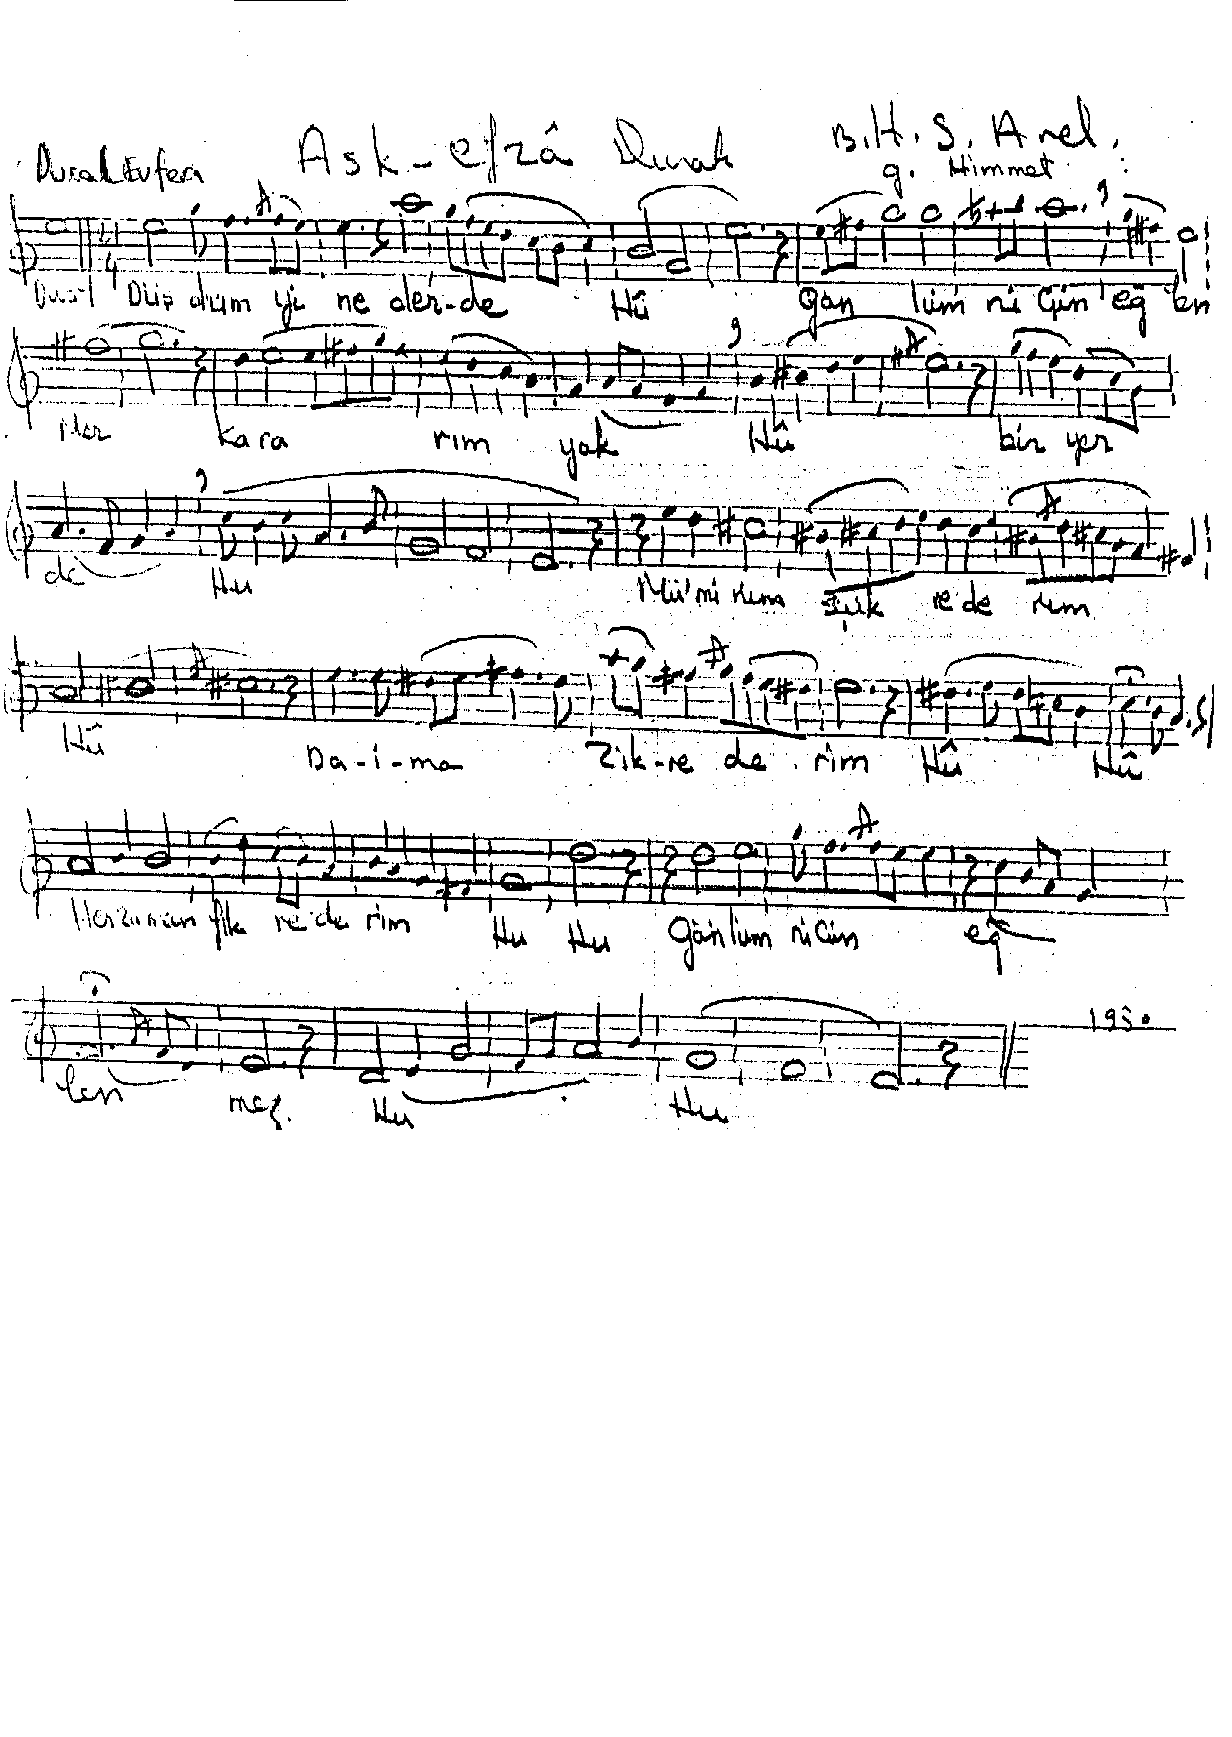 Durak Evferi Aşk-efzâ Durak B. H. S. Arel.
g. Himmet
Dost Düş düm yi ne der-de Hû Gön lüm ni çün eğ len
mez ka ra rım yok Hû bir yer
de Hu Mü'ni nim şük re de rim
Hû Da-i-ma Zik-re de rim Hû Hû
Her zaman fik re de rim Hu Hu Gön lüm ni çün eğ
len mez. Hu Hu